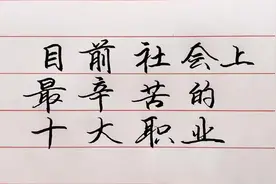 目前社会上
最辛苦的
十大职业